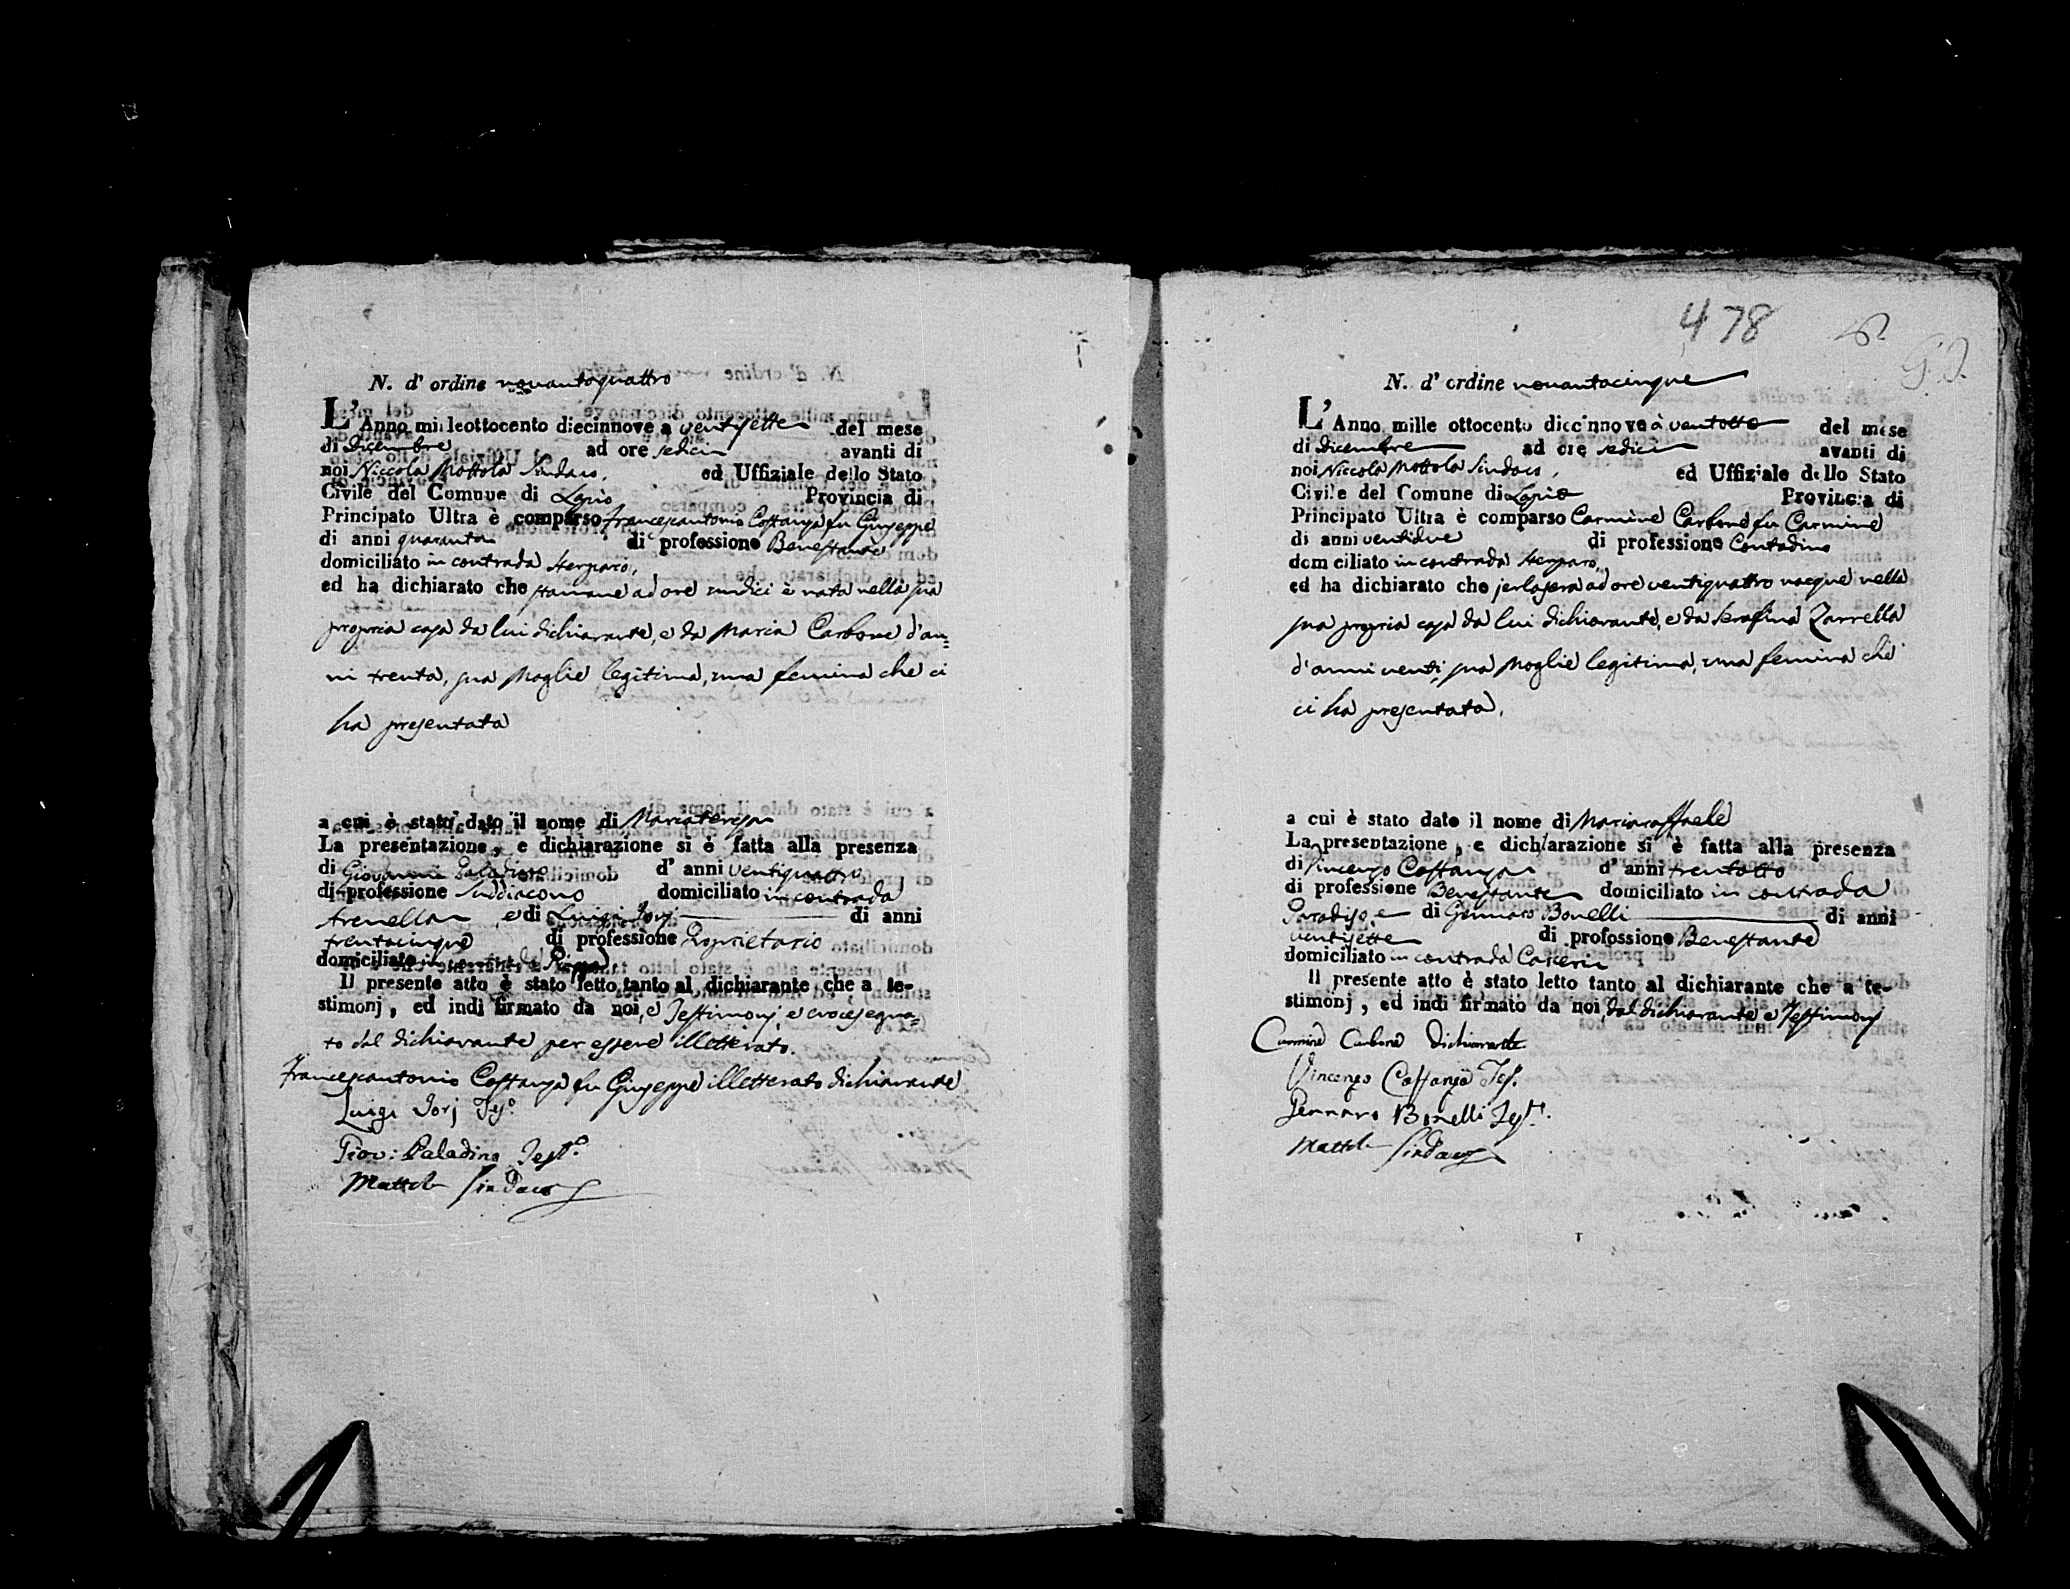 N. d' ordine novantaquattro
L' Anno mille ottocento diecinnove a ventisette del mese
di Dicembre ad ore sedici avanti di
noi Niccola Mottola Sindaco, ed Uffiziale dello Stato
Civile del Comune di Lapio Provincia di
Principato Ultra è comparso Francescantonio Costanza fu Giuseppe
di anni quaranta di professione Benestante
domiciliato in contrada
ed ha dichiarato che stamane ad ore undici è nata nella sua
propria casa da lui dichiarante, e da Maria Carbone d'an=
ni trenta, sua Moglie legitima, una femina che ci
ha presentata
a cui è stato dato il nome di Mariateresa
La presentazione, e dichiarazione si è fatta alla presenza
di Giovanni Paladino d' anni ventiquattro
di professione Suddiacono domiciliato in contrada
Trenella e di Luigi Iorj di anni
trentacinque di professione Proprietario
domiciliato in contrada Ripa
Il presente atto è stato letto tanto al dichiarante che a te-
stimonj, ed indi firmato da noi, e Testimonj, e crocesegna=
to dal dichiarante per essere illetterato.
Francescantonio Costanza fu Giuseppe illetterato dichiarante
Luigi Iorj Teso.
Giov: Paladino Testo.
Mottola Sindaco
478
N. d' ordine novantacinque
L' Anno mille ottocento diecinnove à ventotto del mese
di Dicembre ad ore sedici avanti di
noi Niccola Mottola Sindaco, ed Uffiziale dello Stato
Civile del Comune di Lapio Provincia di
Principato Ultra è comparso Carmine Carbone fu Carmine
di anni ventidue di professione Contadino
domiciliato in contrada
ed ha dichiarato che jerlasera ad ore ventiquattro nacque nella
sua propria casa da lui dichiarante, e da Serafina Zarrella
d'anni venti, sua Moglie legitima, una femina che
ci ha presentata.
a cui è stato dato il nome di Mariaraffaele
La presentazione, e dichiarazione si è fatta alla presenza
di Vincenzo Costanza d' anni trentotto
di professione Benestante domiciliato in contrada
Paradiso e di Gennaro Bonelli di anni
ventisette di professione Benestante
domiciliato in contrada
Il presente atto è stato letto tanto al dichiarante che a te-
stimonj, ed indi firmato da noi, dal dichiarante e Testimonj
Carmine Carbone Dichiarante
Vincenzo Costanza Tes.
Gennaro Bonelli Test.
Mottola Sindaco